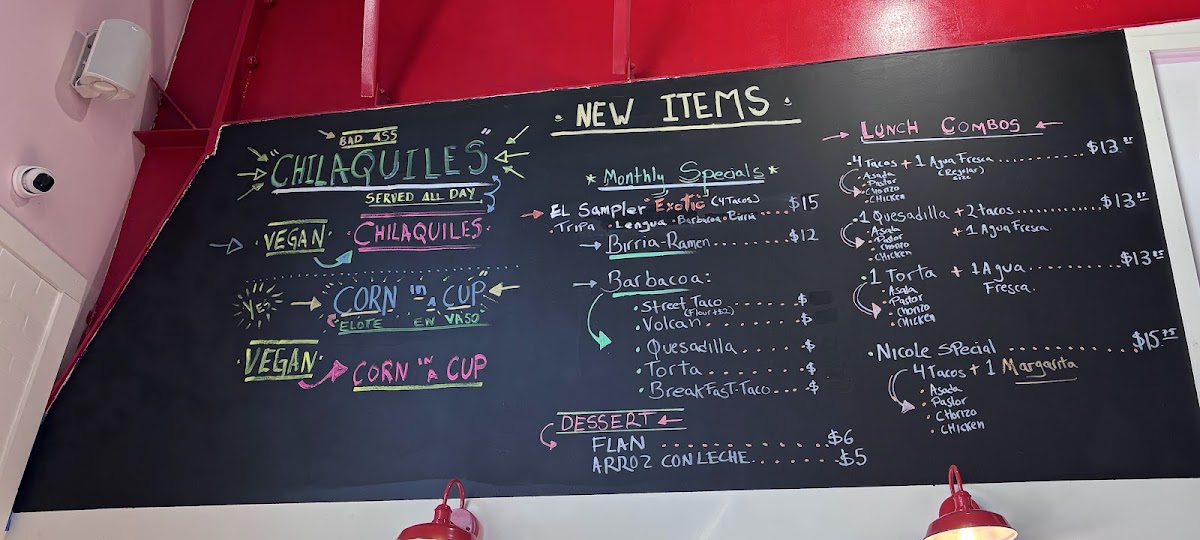 NEW ITEMS
BAD ASS
"CHILAQUILES"
SERVED ALL DAY
VEGAN CHILAQUILES
YES CORN "IN A CUP"
ELOTE EN VASO
VEGAN CORN IN A CUP
Monthly Specials
EL Sampler "Exotic" (4 Tacos) ..... $15
Tripa • Lengua • Barbacoa • Birria
Birria-Ramen ........ $12
Barbacoa:
• Street Taco ........ $
(Flour + $2)
• Volcan ........ $
• Quesadilla ...... $
• Torta ......... $
• BreakFast-Taco .... $
DESSERT
FLAN ............ $6
ARROZ CON LECHE ....... $5
LUNCH COMBOS
• 4 Tacos + 1 Agua Fresca ......... $13
• Asada (Regular)
• Pastor Size
• Chorizo
• CHicken
• 1 Quesadilla + 2 tacos ......... $13
• Asada + 1 Agua Fresca
• Pastor
• Chorizo
• CHicken
• 1 Torta + 1 Agua ......... $13
• Asada Fresca
• Pastor
• Chorizo
• CHicken
• Nicole SPecial ............. $15
4 Tacos + 1 Margarita
• Asada
• Pastor
• CHorizo
• CHicken